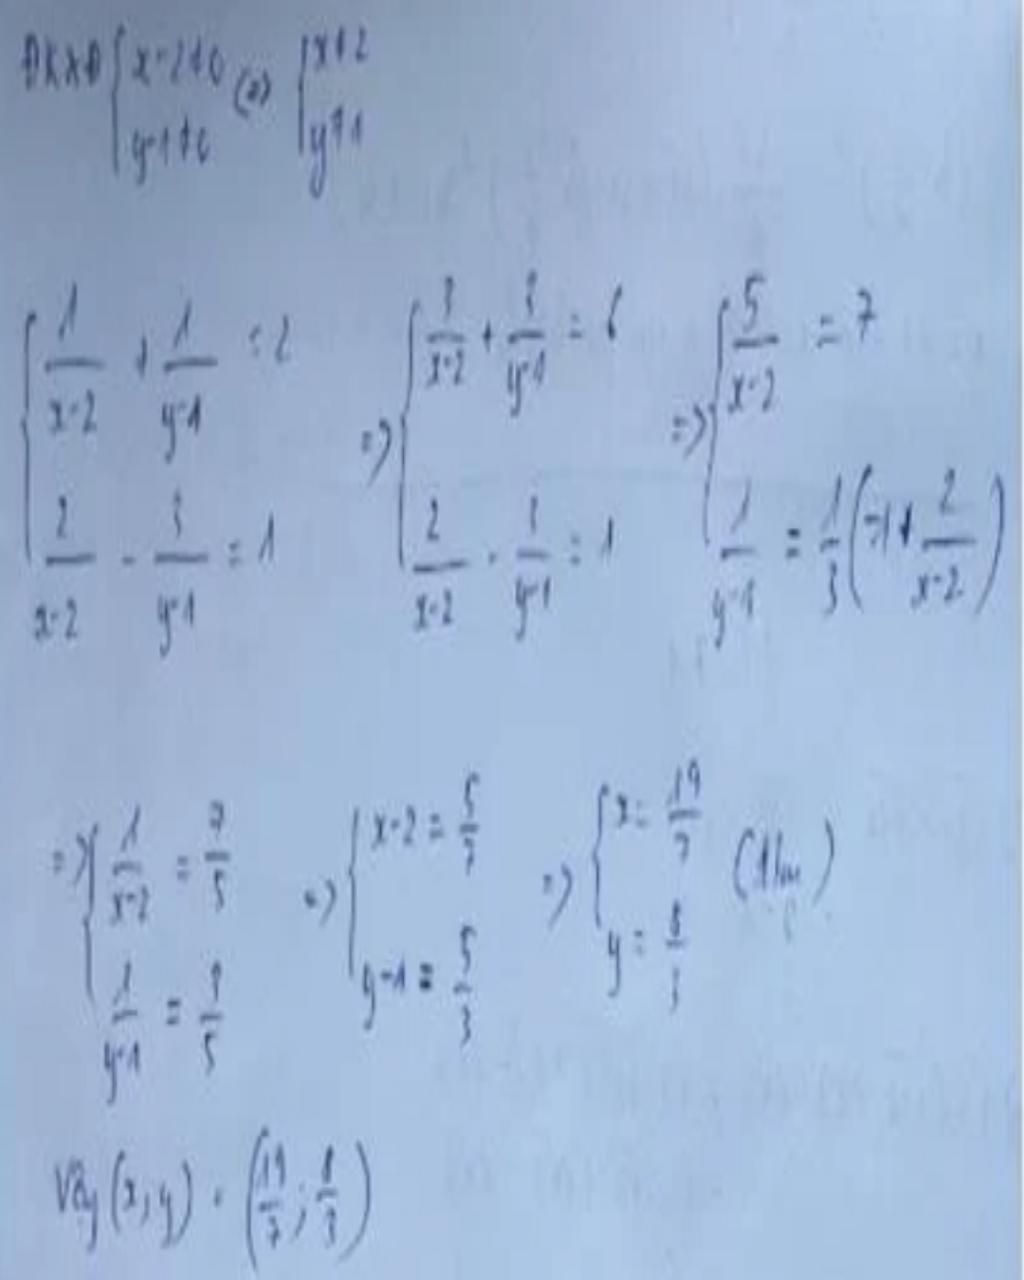 ĐKXĐ { x-2≠0 ; y-1≠0 (=) { x≠2 ; y≠1
{ 1/(x-2) + 1/(y-1) = 2 ; 2/(x-2) - 3/(y-1) = 1 => { 3/(x-2) + 3/(y-1) = 6 ; 2/(x-2) - 3/(y-1) = 1 => { 5/(x-2) = 7 ; 1/(y-1) = 1/3 (-1 + 2/(x-2))
=> { 1/(x-2) = 7/5 ; 1/(y-1) = 3/5 => { x-2 = 5/7 ; y-1 = 5/3 => { x = 19/7 ; y = 8/3
Vậy (x;y) = (19/7 ; 8/3)